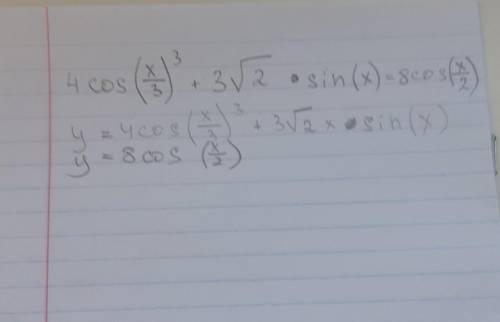 4 cos(x/3)³ + 3√2 • sin(x) = 8cos(x/2)
y = 4cos(x/3)³ + 3√2 x • sin(x)
y = 8cos (x/2)